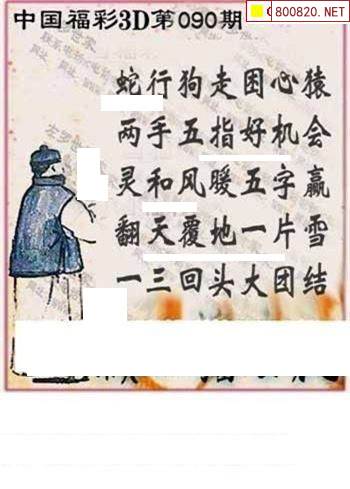 中国福彩3D第090期
800820.NET
蛇行狗走困心猿
两手五指好机会
灵和风暖五字赢
翻天覆地一片雪
一三回头大团结